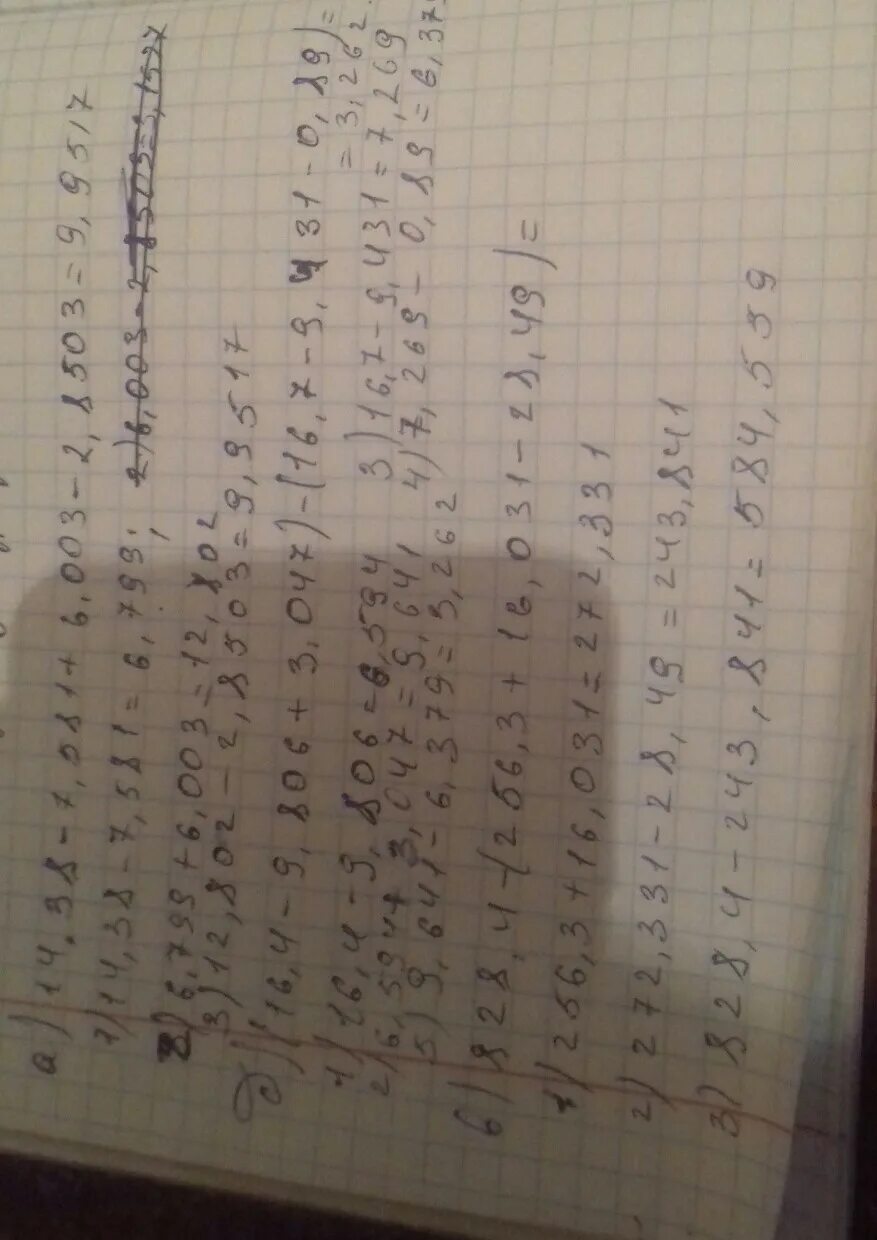 а) 14,38-7,581+6,003-2,8503=9,9517
1) 14,38-7,581=6,799; 2) 6,003-2,8503=3,1527
2) 6,799+6,003=12,802
3) 12,802-2,8503=9,9517
б) (16,4-9,806+3,047)-(16,7-9,431-0,89)=
=3,262.
1) 16,4-9,806=6,594 3) 16,7-9,431=7,269
2) 6,594+3,047=9,641 4) 7,269-0,89=6,379
5) 9,641-6,379=3,262
в) 828,4-(256,3+16,031-28,49)=
1) 256,3+16,031=272,331
2) 272,331-28,49=243,841
3) 828,4-243,841=584,559